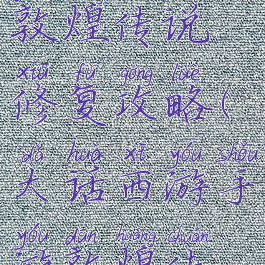 敦煌传说
xiū fù gōng lüè
修复攻略(
dà huà xī yóu shǒu
大话西游手
yóu dūn huáng chuán
游敦煌传